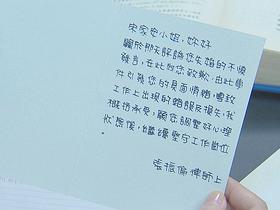 宋家宝小姐,妳好
關於那天評論您失婚的不慎
發言,在此向您致歉,由此事
件引發您的負面情緒,導致
工作上出現的錯誤及損失,我
概括承受,願您調整好心理
狀態後,繼續堅守工作崗位
。
張振倫律師上